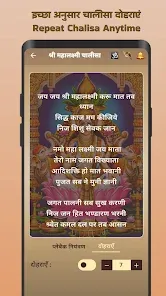 इच्छा अनुसार चालीसा दोहराएं
Repeat Chalisa Anytime
श्री महालक्ष्मी चालीसा
जय जय श्री महालक्ष्मी करू मात तव
ध्यान
सिद्ध काज मम कीजिये
निज शिशु सेवक जान
नमो महा लक्ष्मी जय माता
तेरो नाम जगत विख्याता
आदिशक्ति हो मात भवानी
पूजत सब नर मुनी ज्ञानी
जगत पालनी सब सुख करणी
निज जन हित भण्डारण भरणी
श्वेत कमल दल पर तव आसन
प्लेबैक नियंत्रण
दोहराएँ
दोहराएँ :
7